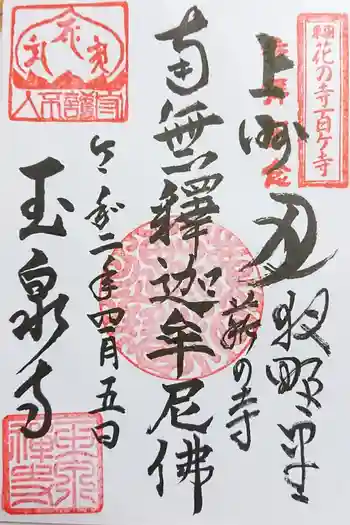 花の寺百ケ寺
上州月夜野
の寺
南無釋迦牟尼佛
令和二年四月五日
玉泉寺
玉泉禅寺